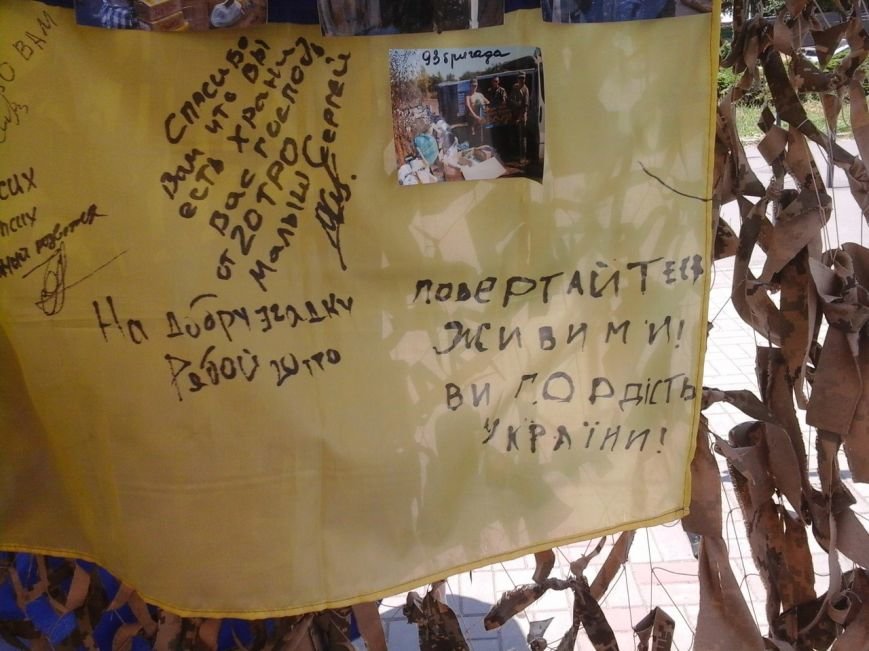 О ВАМ
93
93 бригада
Спасибо
Вам что вы
есть храни
Вас господь
от 20ТРО
Малыш Сергей
сих
На добру згадку
Рябой
повертайтеся
живими!
ви гордість
україни!